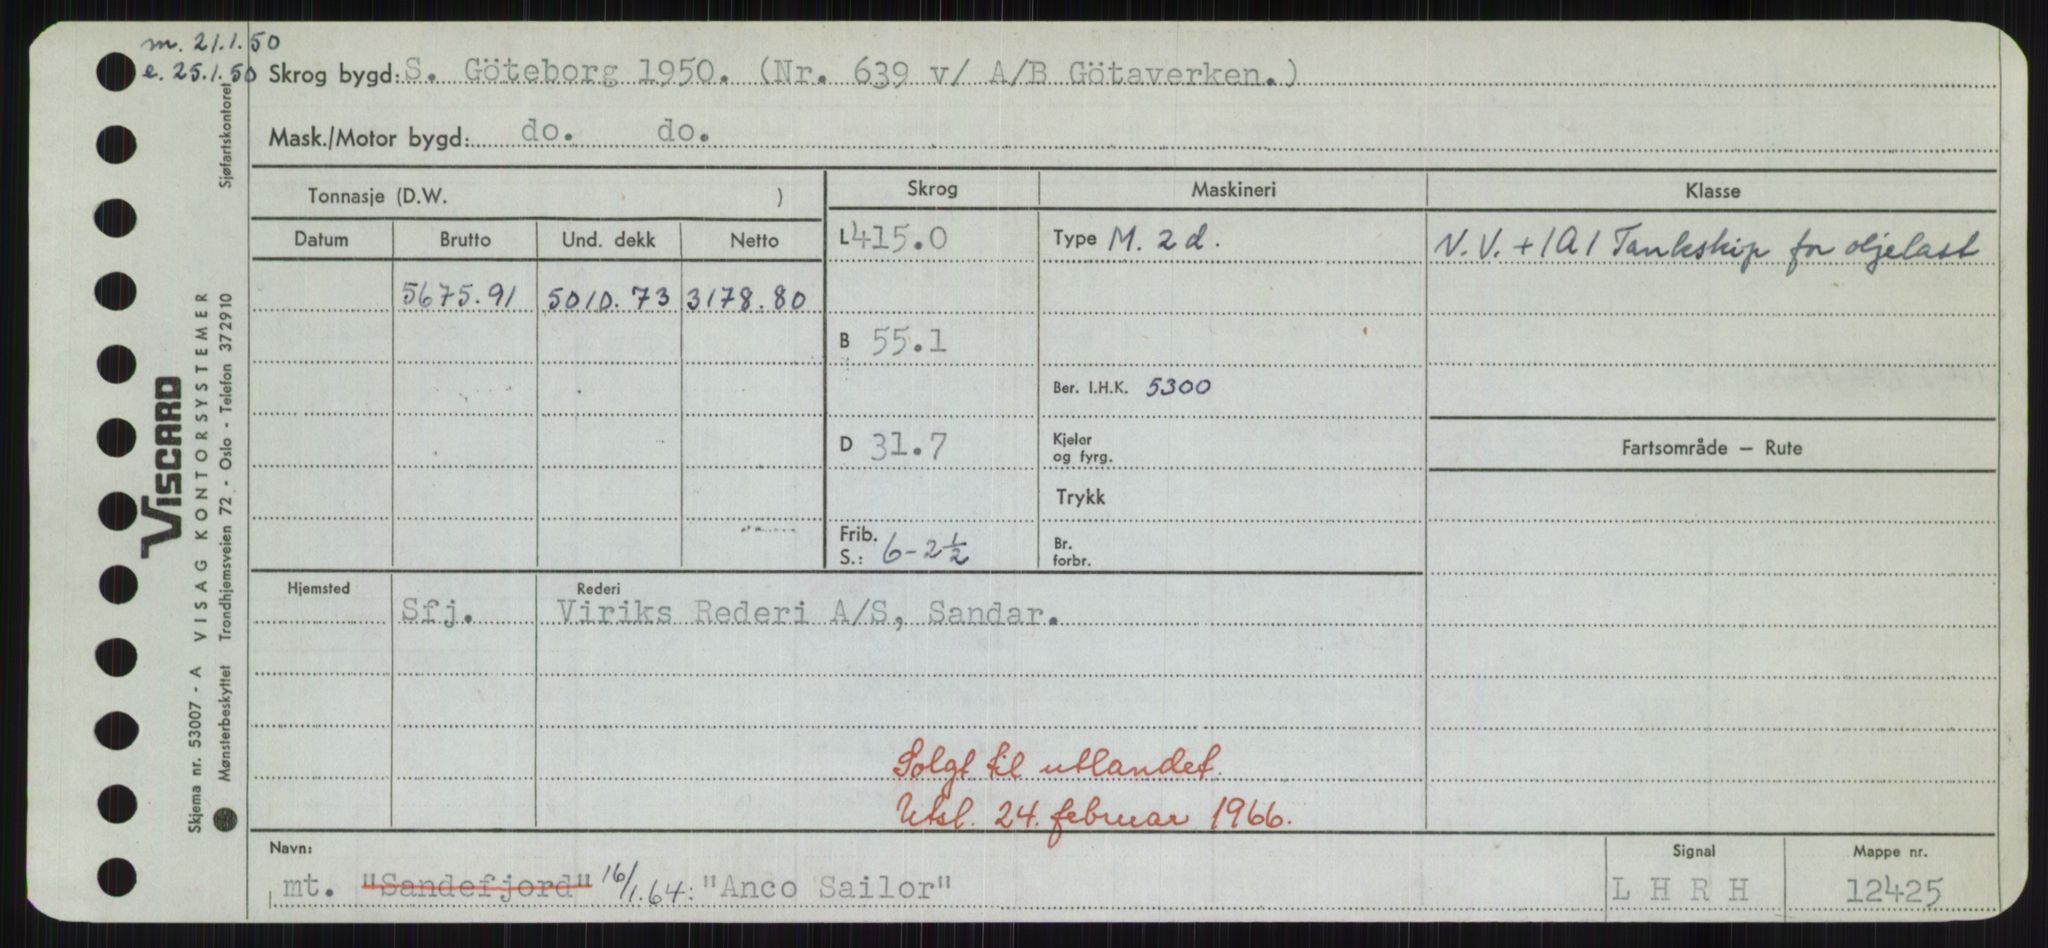 m. 21.1.50
e. 25.1.50 Skrog bygd: S. Göteborg 1950. (Nr. 639 v/ A/B Götaverken.)
Mask./Motor bygd: do. do.
Tonnasje (D.W. ) Skrog Maskineri Klasse
Datum Brutto Und. dekk Netto L 415.0 Type M. 2 d. N.V. + 1A1 Tankskip for oljelast
5675.91 5010.73 3178.80
B 55.1
Ber. I.H.K. 5300
D 31.7 Kjeler og fyrg. Fartsområde — Rute
Trykk
Frib. S.: 6-2½ Br. forbr.
Hjemsted Rederi
Sfj. Viriks Rederi A/S, Sandar.
Solgt til utlandet.
Utsl. 24. februar 1966.
Navn: Signal Mappe nr.
mt. "Sandefjord" 16/1.64: "Anco Sailor" L H R H 12425
Skjema nr. 53007 - A VISAG KONTORSYSTEMER
VISCARD
Mønsterbeskyttet Trondhjemsveien 72 - Oslo - Telefon 372910 Sjøfartskontoret